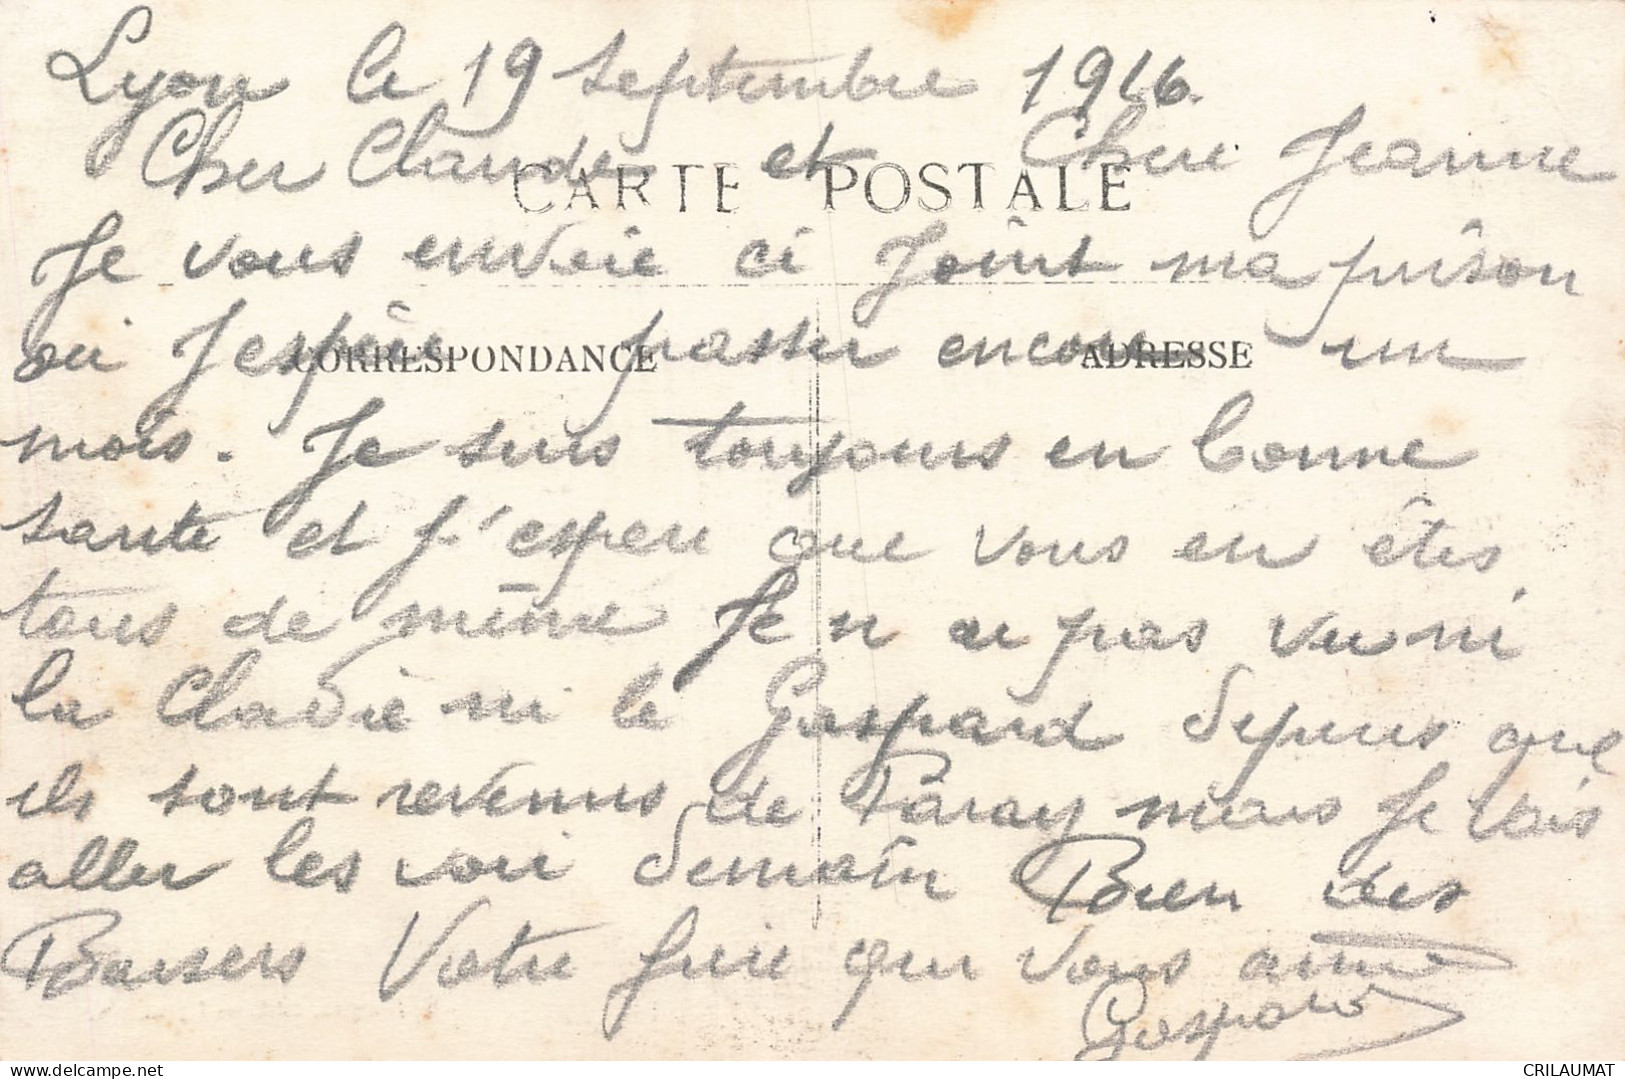 Lyon le 19 septembre 1916.
Cher Claude et Chere Jeanne
CARTE POSTALE
Je vous envoie ci Joint ma prison
ou J espère passer encore un
CORRESPONDANCE ADRESSE
mois. Je suis toujours en bonne
santé et j'espere que vous en êtes
tous de même Je n ai pas vu ni
la Claudie ni le Gaspard depuis que
ils sont revenus de Paray mais Je vais
aller les voir demain Bien des
Baisers Votre frere qui vous aime
Gaspard
delcampe.net
CRILAUMAT